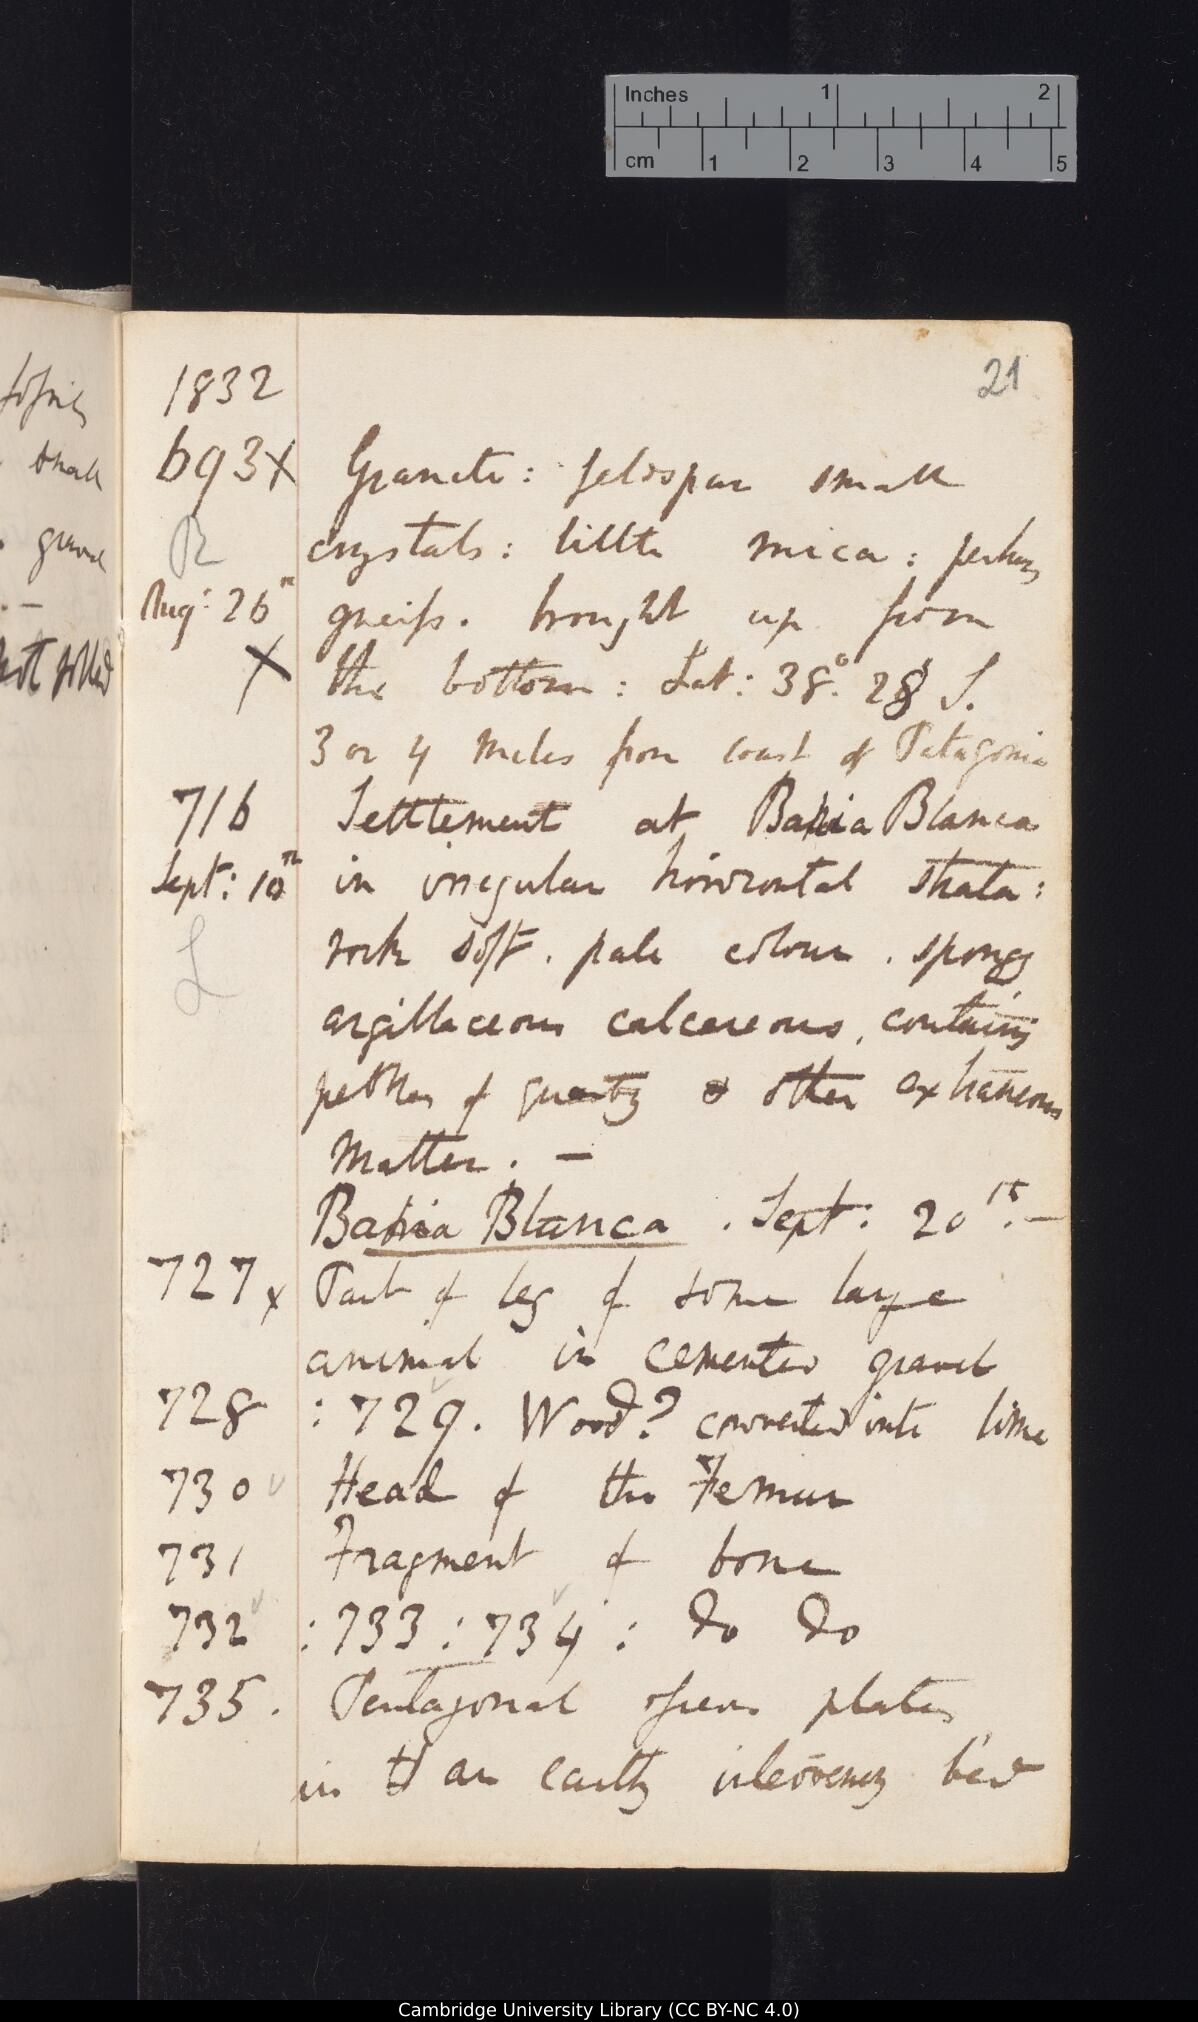 Inches 1 2
cm 1 2 3 4 5
21
1832
693 X Granite: feldspar small
R crystals: little mica: perhaps
Aug: 26th gneiss. brought up from
X the bottom: Lat: 38°. 28' S.
3 or 4 miles from coast of Patagonia
716 Settlement at Bahia Blanca
Sept: 10th in irregular horizontal strata:
L rock soft. pale colour. spongy
argillaceous calcareous, containing
pebbles of quartz & other extraneous
matter. —
Bahia Blanca. Sept: 20th. —
727 x Part of leg of some large
animal in cemented gravel
728 : 729. Wood? converted into lime
730 Head of the Femur
731 Fragment of bone
732 : 733 : 734 : do do
735. Pentagonal osseous plates
in an earthy intervening bed
gravel
not rolled
Cambridge University Library (CC BY-NC 4.0)